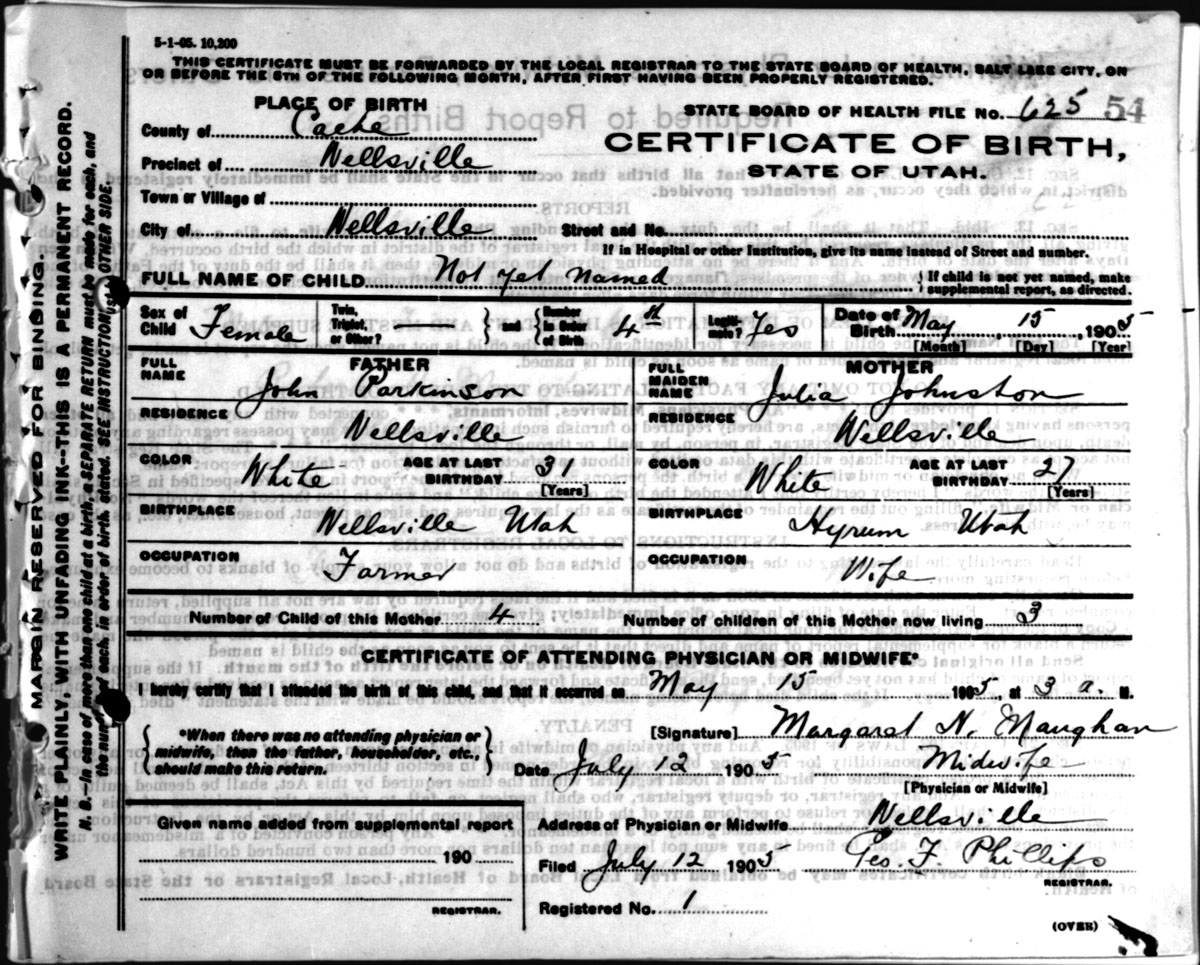 5-1-05. 10,200
THIS CERTIFICATE MUST BE FORWARDED BY THE LOCAL REGISTRAR TO THE STATE BOARD OF HEALTH, SALT LAKE CITY, ON
OR BEFORE THE 5TH OF THE FOLLOWING MONTH, AFTER FIRST HAVING BEEN PROPERLY REGISTERED.
MARGIN RESERVED FOR BINDING.
WRITE PLAINLY, WITH UNFADING INK--THIS IS A PERMANENT RECORD.
N. B.--In case of more than one child at a birth, a SEPARATE RETURN must be made for each, and
the number of each, in order of birth, stated. SEE INSTRUCTIONS ON OTHER SIDE.
PLACE OF BIRTH
County of Cache
Precinct of Wellsville
Town or Village of
City of Wellsville
STATE BOARD OF HEALTH FILE No. 625 54
CERTIFICATE OF BIRTH,
STATE OF UTAH.
Street and No.
If in Hospital or other Institution, give its name instead of Street and number.
FULL NAME OF CHILD Not yet named { If child is not yet named, make supplemental report, as directed.
Sex of Child Female Twin, Triplet, or Other? } and { Number in Order of Birth 4th Legiti-mate? Yes Date of Birth May 15, 1905
[Month] [Day] [Year]
FATHER
FULL NAME John Parkinson
RESIDENCE Wellsville
COLOR White AGE AT LAST BIRTHDAY 31
[Years]
BIRTHPLACE Wellsville Utah
OCCUPATION Farmer
MOTHER
FULL MAIDEN NAME Julia Johnston
RESIDENCE Wellsville
COLOR White AGE AT LAST BIRTHDAY 27
[Years]
BIRTHPLACE Hyrum Utah
OCCUPATION Wife
Number of Child of this Mother 4 Number of children of this Mother now living 3
CERTIFICATE OF ATTENDING PHYSICIAN OR MIDWIFE*
I hereby certify that I attended the birth of this child, and that it occurred on May 15 1905, at 3 a. M.
{ *When there was no attending physician or midwife, than the father, householder, etc., should make this return. }
[Signature] Margaret N. Maughan
Date July 12 1905 Midwife
[Physician or Midwife]
Given name added from supplemental report
190
REGISTRAR.
Address of Physician or Midwife Wellsville
Filed July 12 1905 Geo. F. Phillips
REGISTRAR.
Registered No. 1
(OVER)